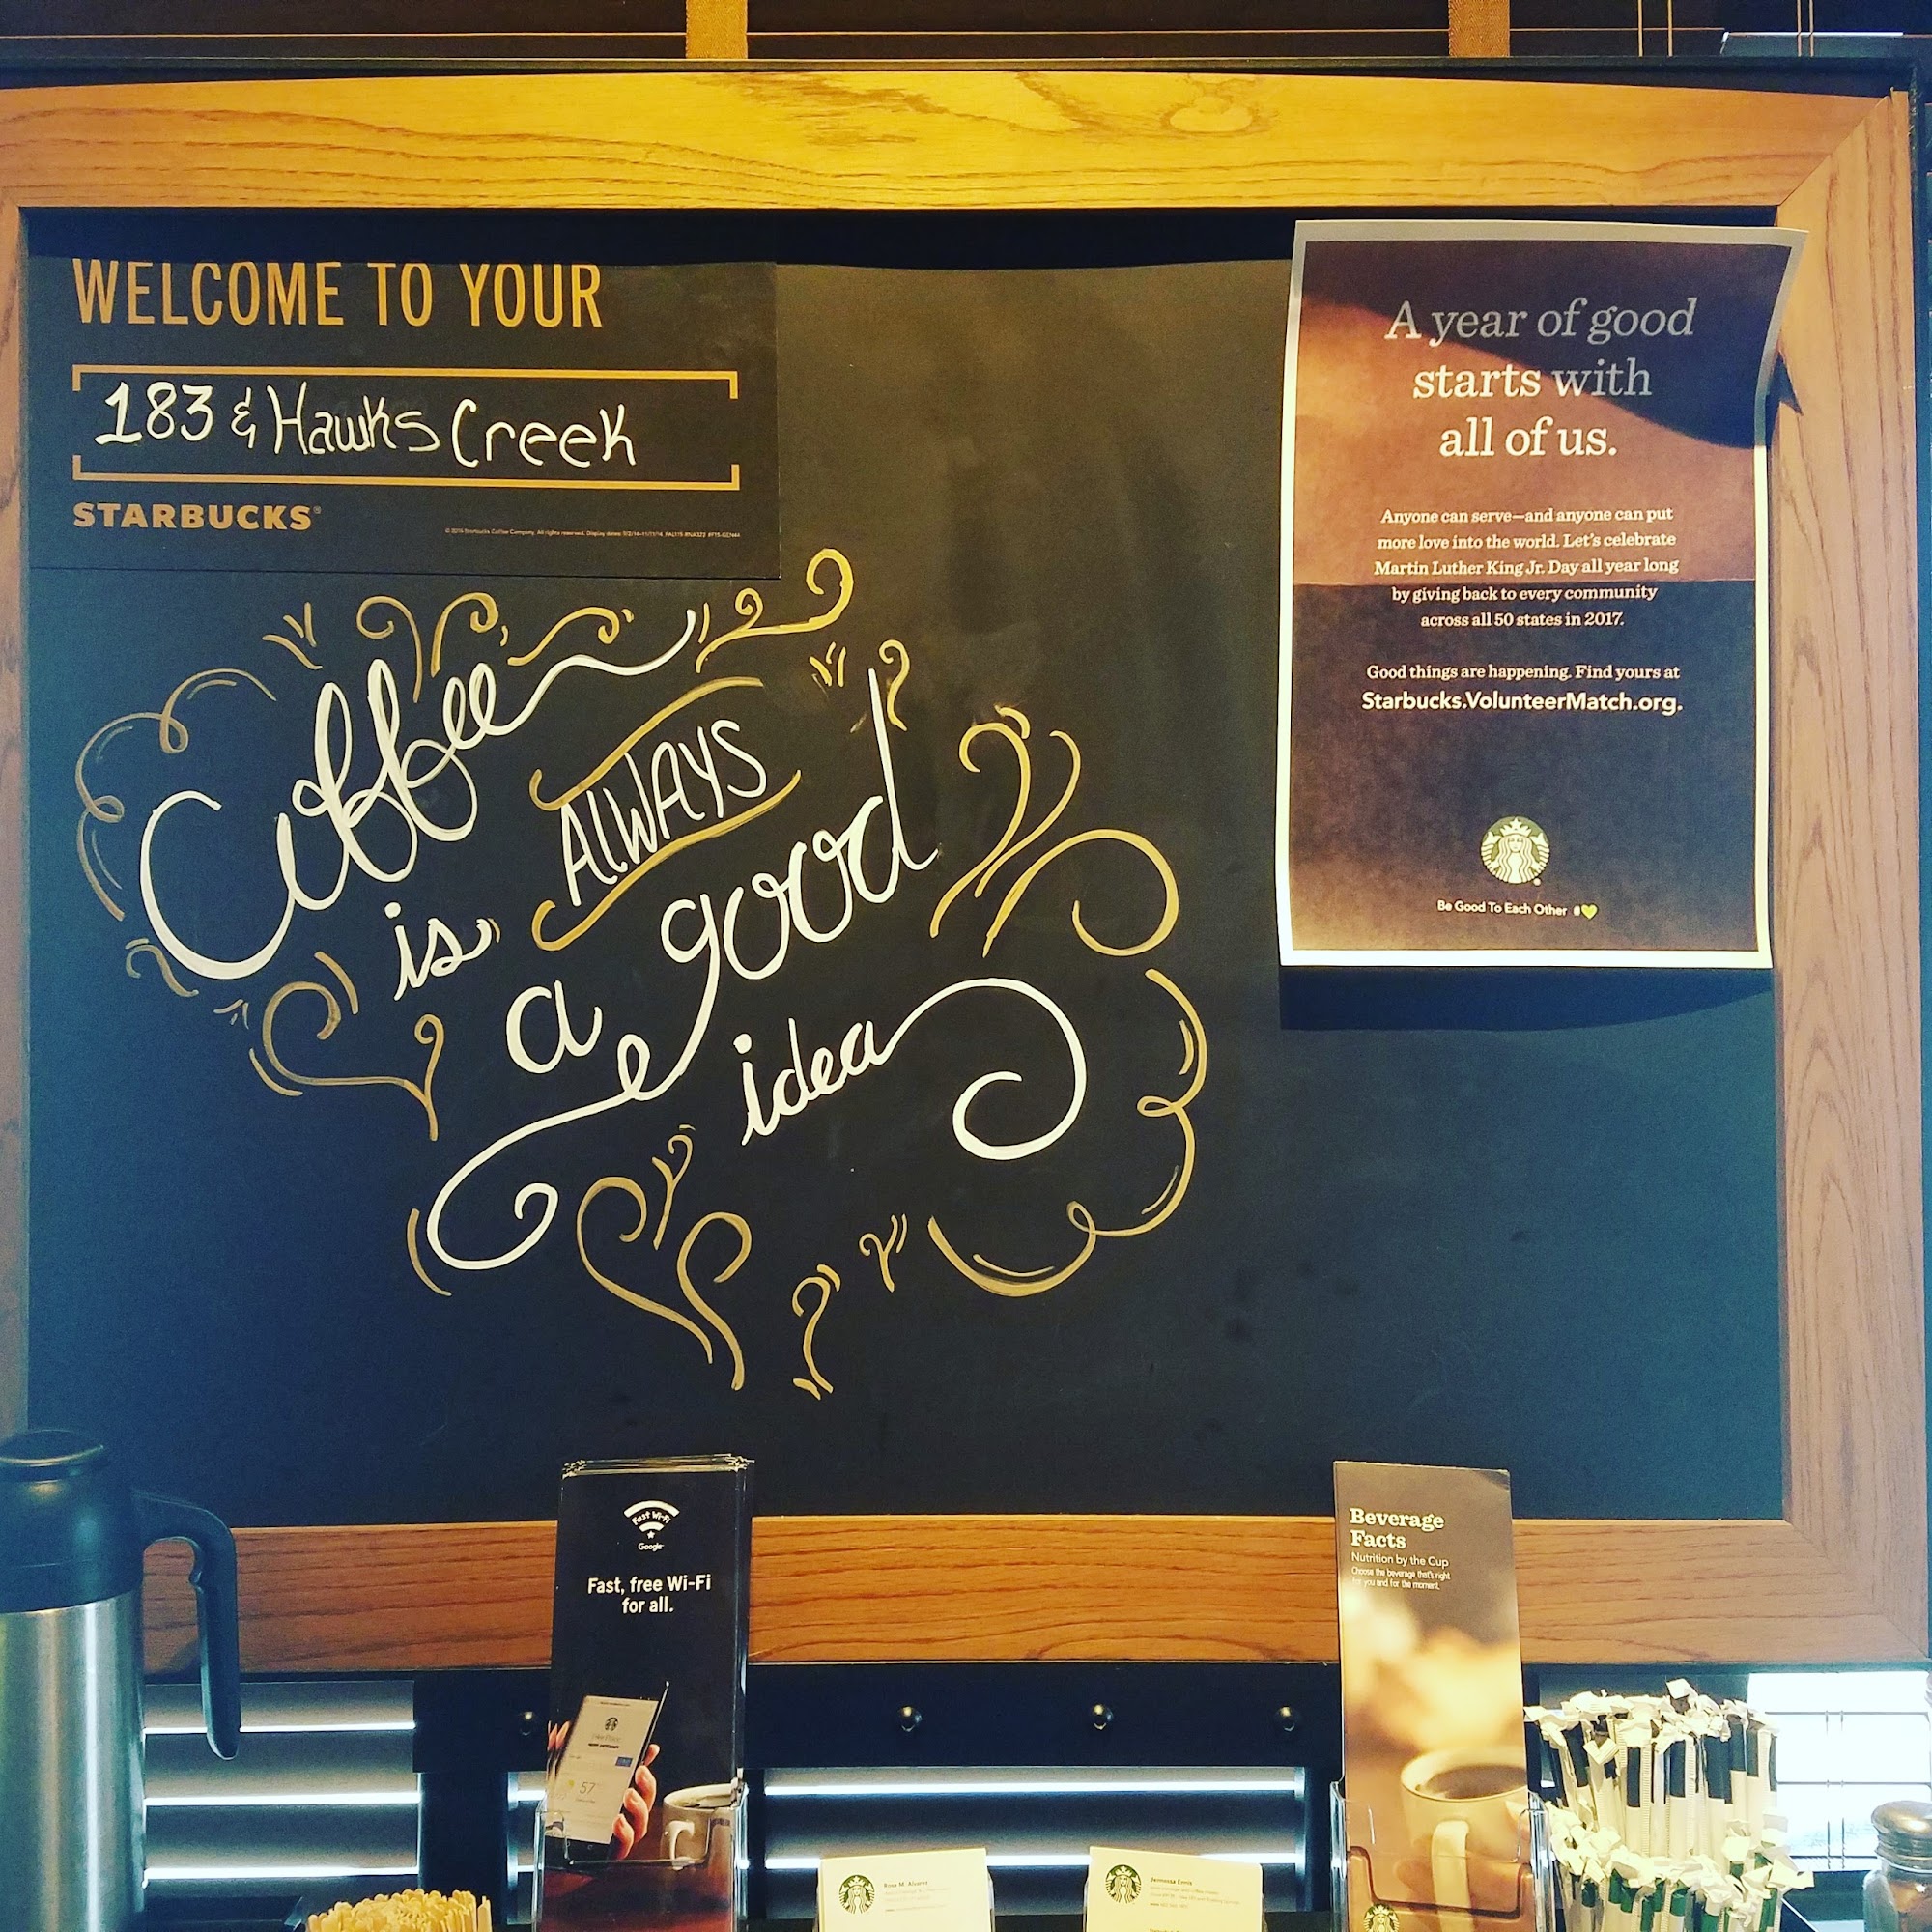 WELCOME TO YOUR
183 & Hawks Creek
STARBUCKS®
Coffee
is ALWAYS
a good
idea
A year of good
starts with
all of us.
Anyone can serve—and anyone can put
more love into the world. Let's celebrate
Martin Luther King Jr. Day all year long
by giving back to every community
across all 50 states in 2017.
Good things are happening. Find yours at
Starbucks.VolunteerMatch.org.
Be Good To Each Other #💛
Fast Wi-Fi
Google
Fast, free Wi-Fi
for all.
57
Beverage
Facts
Nutrition by the Cup
Choose the beverage that's right
for you and for the moment.
Rosa M. Alvarez